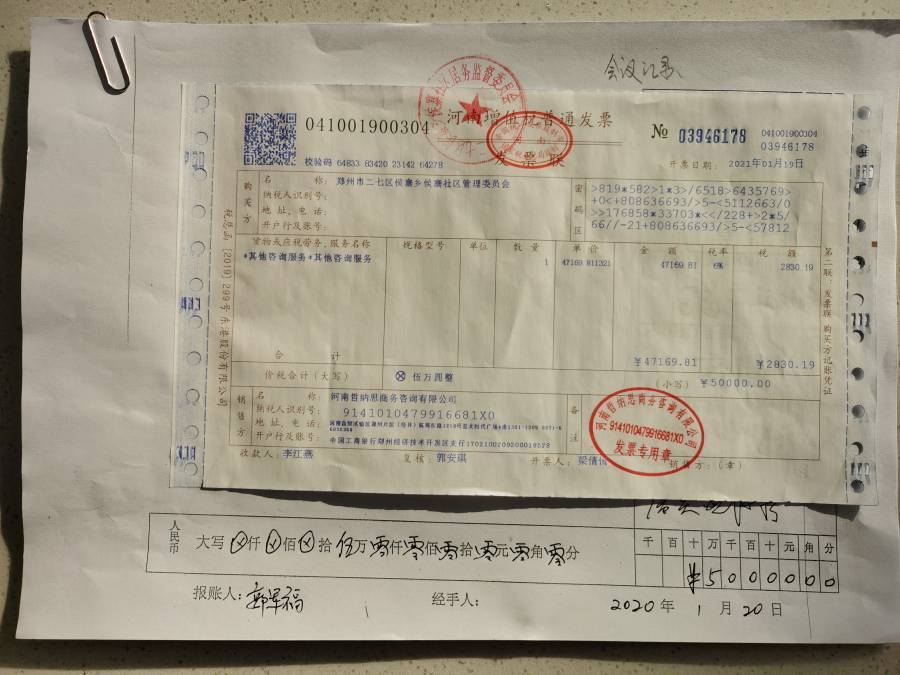 会议记录
河南增值税普通发票
发票联
041001900304
№ 03946178
041001900304
03946178
校验码 64833 83420 23142 64278
开票日期: 2021年01月19日
购买方
名 称: 郑州市二七区侯寨乡侯寨社区管理委员会
纳税人识别号:
地址、电话:
开户行及账号:
密码区
>819*582>1*3>/6518>6435769>
+0<+808636693/>5-<5112663/0
>>176858*33703*<</228+>2*5/
66//-21+808636693/>5-<57812
货物或应税劳务、服务名称 规格型号 单位 数量 单价 金额 税率 税额
*其他咨询服务*其他咨询服务 1 47169.811321 47169.81 6% 2830.19
合 计 ¥47169.81 ¥2830.19
价税合计(大写) ⊗ 伍万圆整 (小写) ¥50000.00
销售方
名 称: 河南哲纳思商务咨询有限公司
纳税人识别号: 9141010479916681X0
地址、电话:
开户行及账号: 中国工商银行郑州经济技术开发区支行1702100209200010528
备注
收款人: 李江燕 复核: 郭安琪 开票人: 梁倩 销售方: (章)
河南哲纳思商务咨询有限公司
9141010479916681X0
发票专用章
税总函〔2019〕299号 东港股份有限公司
第二联: 发票联 购买方记账凭证
人民币
大写 ⊗仟⊗佰⊗拾伍万零仟零佰零拾零元零角零分
千 百 十 万 千 百 十 元 角 分
¥ 5 0 0 0 0 0 0
报账人: 郭军福 经手人: 2020 年 1 月 20 日